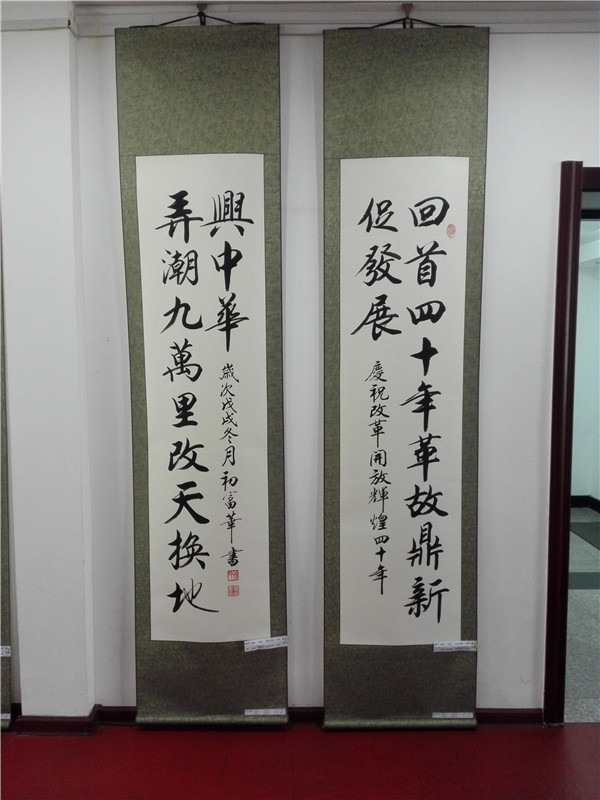 回首四十年革故鼎新
促發展
慶祝改革開放輝煌四十年
弄潮九萬里改天換地
興中華
歲次戊戌冬月初富華書